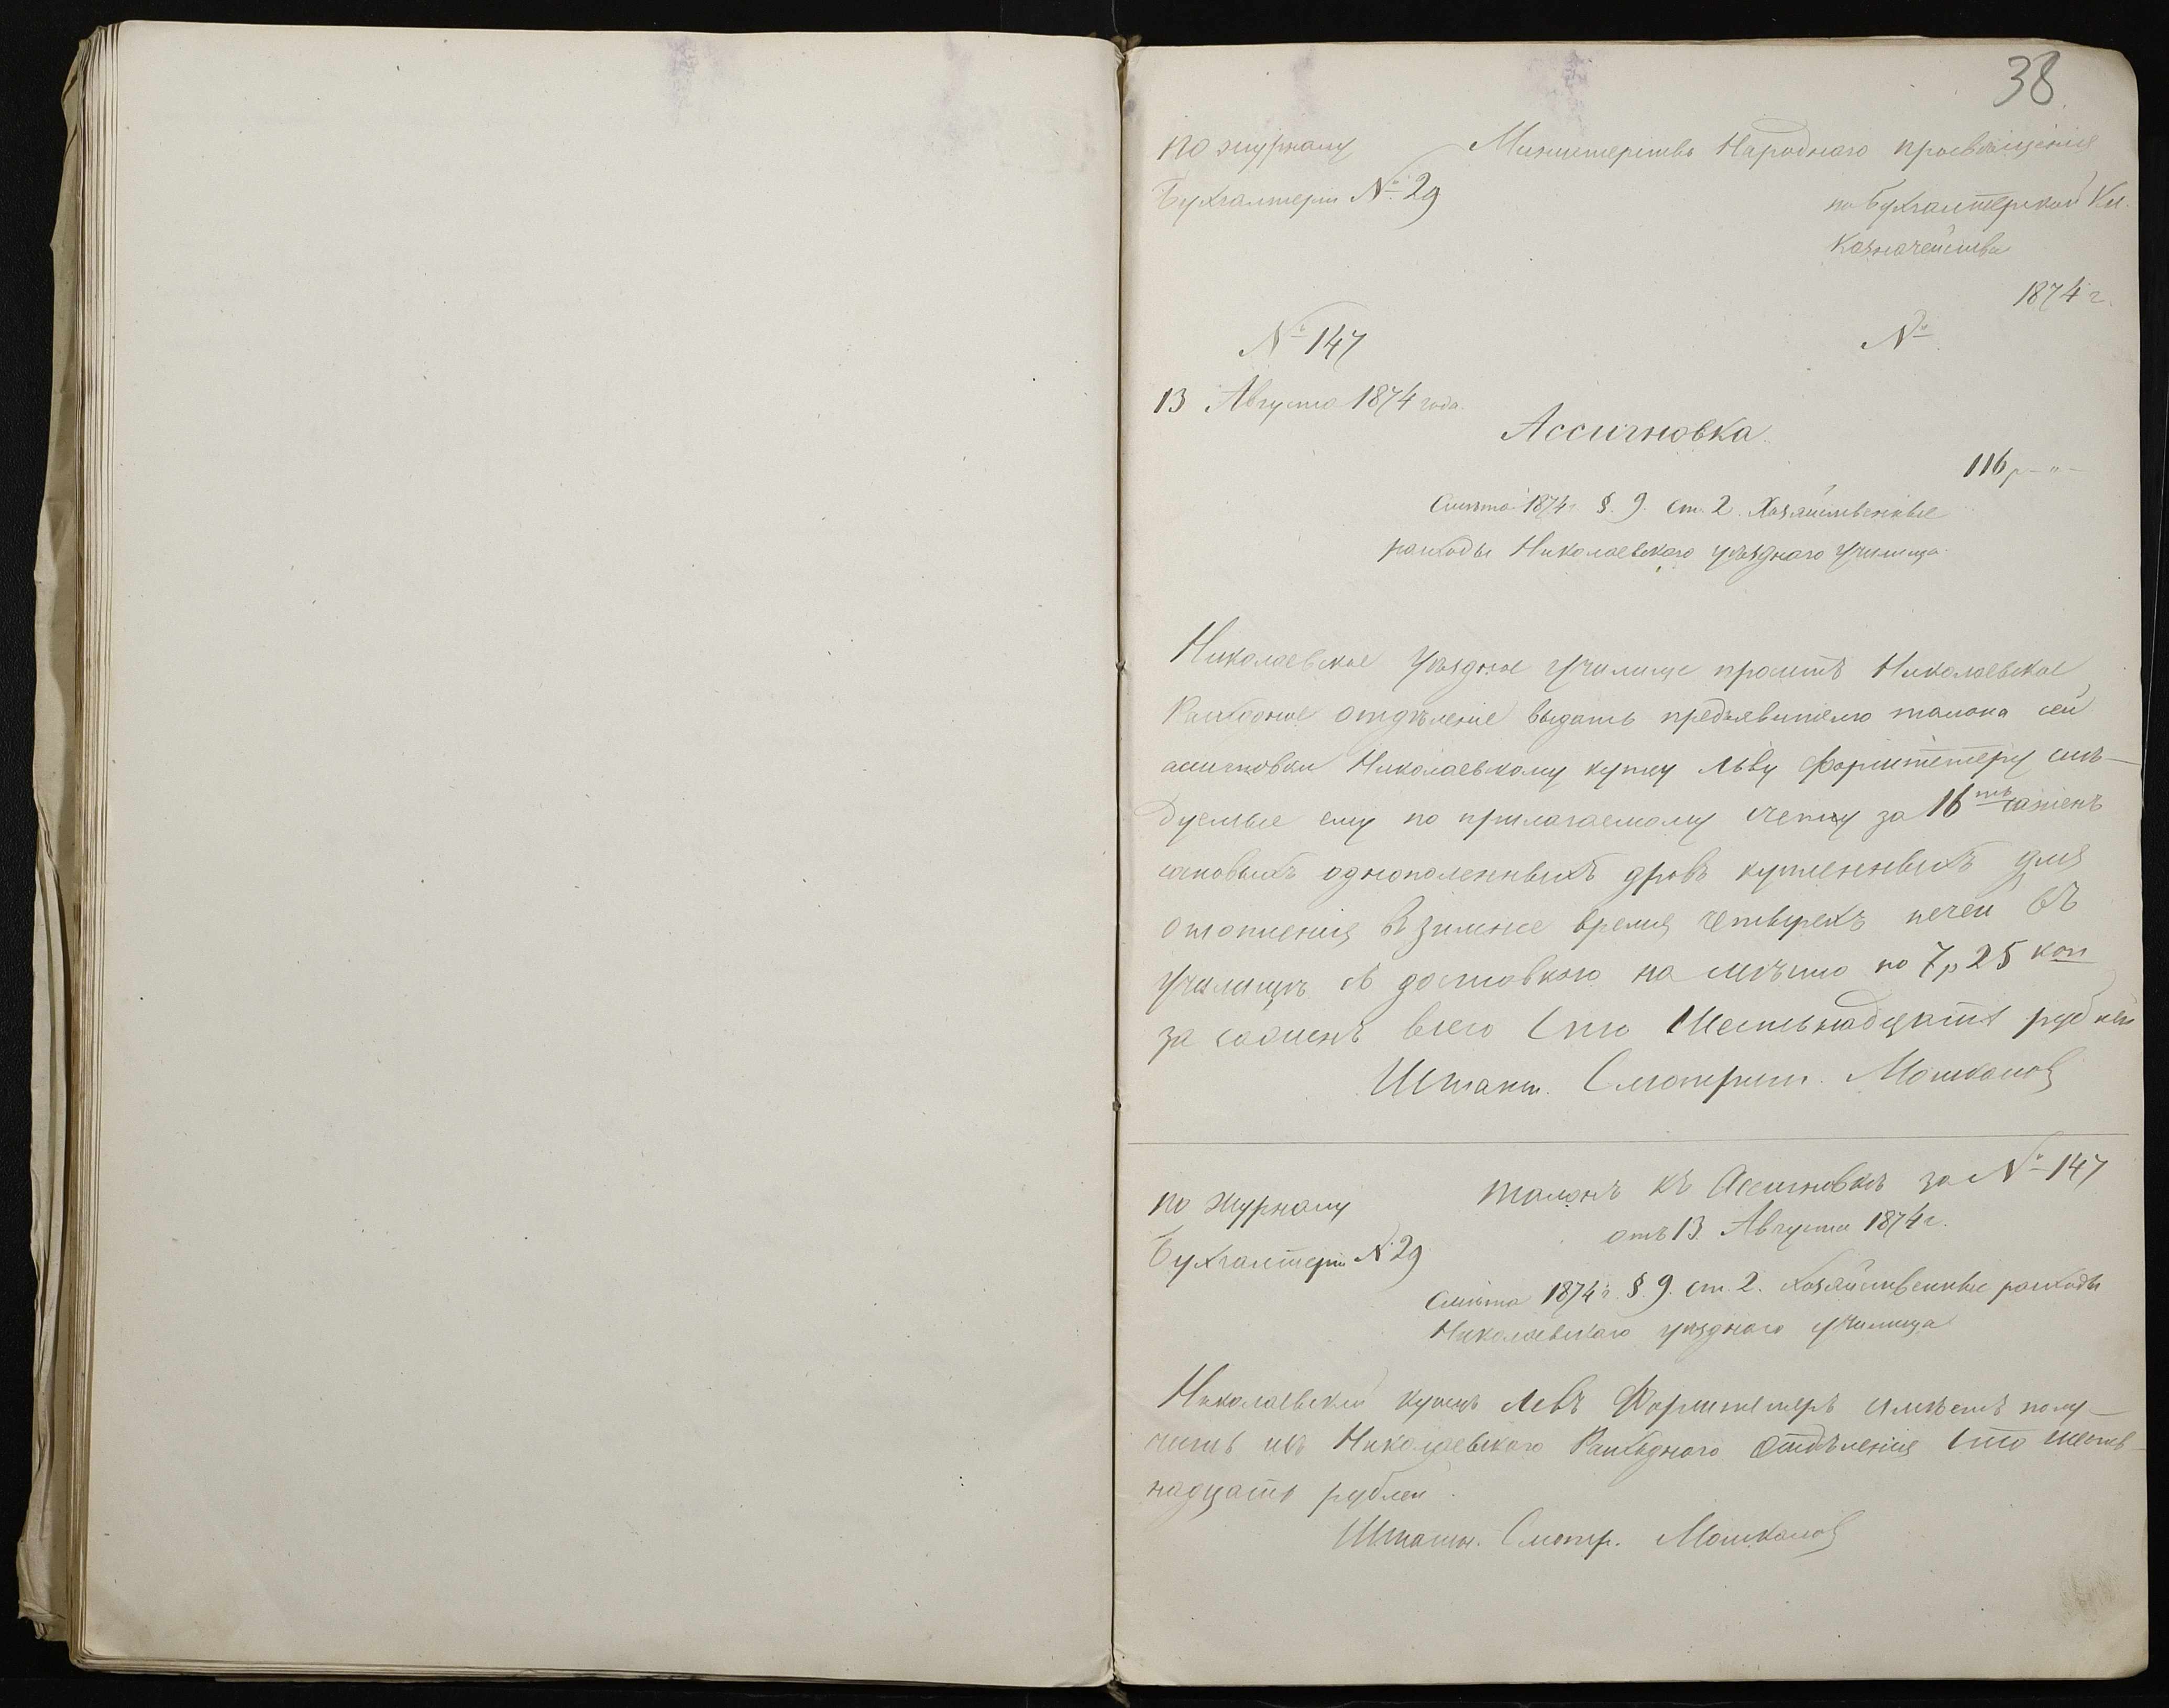 38
по журналу
Бухгалтеріи № 29
Министерство Народнаго просвѣщенія
по Бухгалтерской Кн.
Казначейства
1874 г.
№ 147
№
13 Августа 1874 года.
Ассигновка.
116 р — " —
Смѣта 1874 г. §. 9. ст. 2. Хозяйственные
расходы Николаевскаго уѣзднаго училища.
Николаевское Уѣздное Училище проситъ Николаевское
Расходное отдѣленіе выдать предъявителю талона сей
ассигновки Николаевскому купцу Льву Форштетеру слѣ-
дуемые ему по прилагаемому счету за 16 ть сажень
сосновыхъ однополенныхъ дровъ купленныхъ для
отопленія въ зимнее время четырехъ печей въ
Училищѣ съ доставкою на мѣсто по 7 р 25 коп
за сажень всего Сто Шестьнадцать рублей
Штатн. Смотрит. Машкалов
по журналу
Бухгалтеріи № 29
Талонъ къ Ассигновкѣ за № 147
отъ 13 Августа 1874 г.
Смѣта 1874 г. §. 9. ст. 2. Хозяйственные расходы
Николаевскаго уѣзднаго училища
Николаевскій купецъ Левъ Форштетеръ имѣетъ полу-
чить изъ Николаевскаго Расходнаго Отдѣленія Сто шесть-
надцать рублей.
Штатн. Смотр. Машкалов